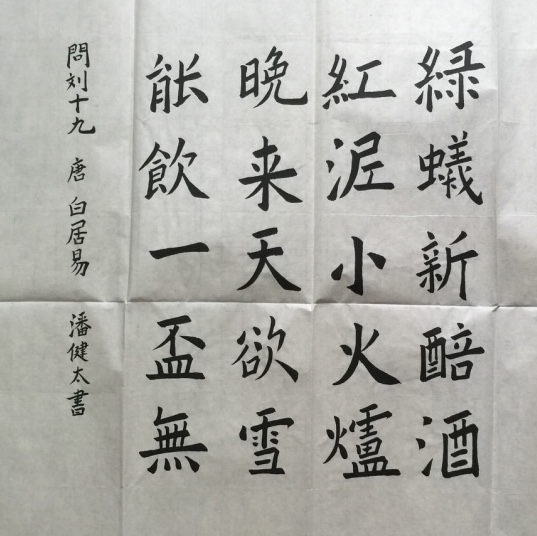 綠蟻新醅酒
紅泥小火爐
晚来天欲雪
能飲一盃無
問刘十九 唐 白居易 潘健太書